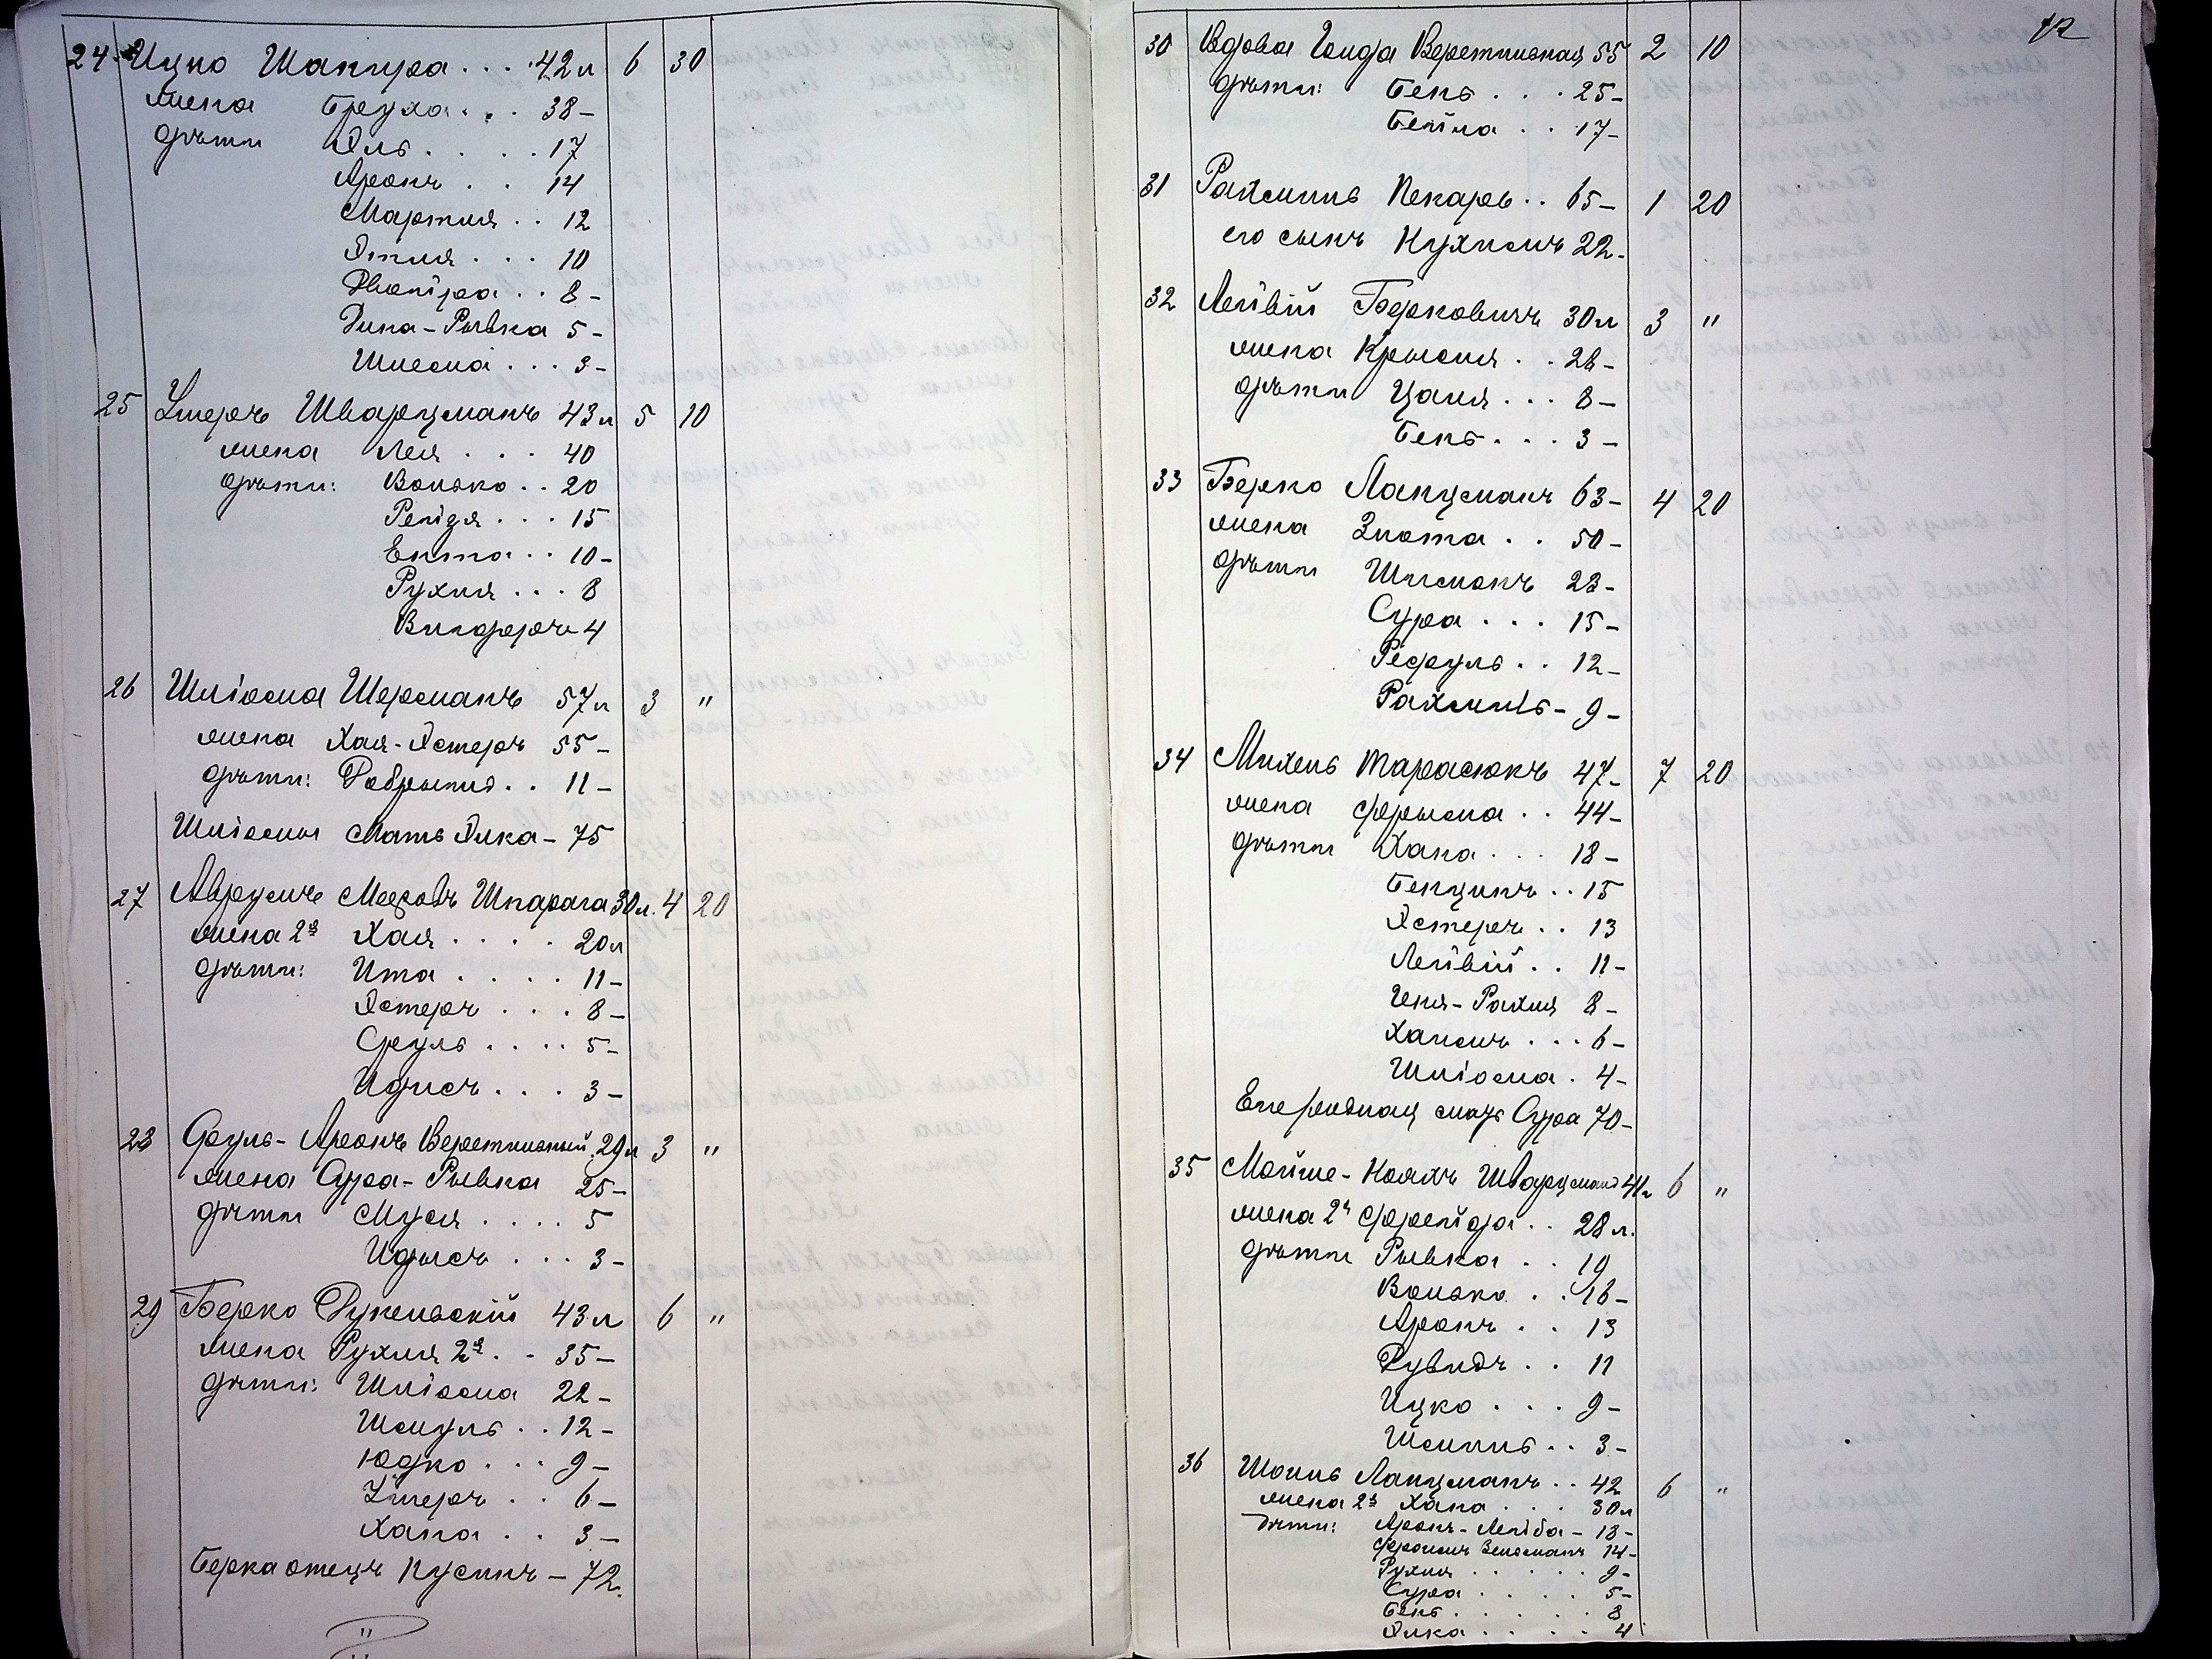 24 Ицко Шапира . . . 42 л 6 30
жена Бруха . . . 38 –
дѣти Эль . . . . 17
Аронъ . . 14
Мартия . . 12
Этия . . . 10
Двойра . . 8 –
Дина-Рывка 5 –
Шлема . . . 3 –
25 Умеръ Шварцманъ 43 л 5 10
жена Лея . . . 40
дѣти: Волько . . 20
Рейзя . . . 15
Ента . . 10 –
Рухля . . . 8
Вигдеръ 4
26 Шлiома Шерманъ 57 л 3 "
жена Хая-Эстеръ 55 –
дѣти: Добрыня . . 11 –
Шлiомы мать Элка – 75
27 Аврумъ Шпарага 30 л. 4 20
жена 2я Хая . . . . 20 л
дѣти: Ита . . . . 11 –
Эстеръ . . . 8 –
Сруль . . . . 5 –
Идисъ . . . 3 –
28 Сруль-Аронъ Веретильный 29 л 3 "
жена Сура-Рывка 25 –
дѣти Муся . . . . 5
Идысъ . . . 3 –
29 Берко Дукельскiй 43 л 6 "
жена Рухля 2я . . 35 –
дѣти: Шлiома 22 –
Шмуль . . 12 –
Юдко . . . 9 –
Умеръ . . 6 –
Хана . . 3 –
Берка отецъ Нусинъ – 72.
"
12
30 Вдова Гольда Веретильная 55 2 10
дѣти: Бень . . . 25 –
Бейла . . 17 –
31 Рахмиль Пекарь . . 65 – 1 20
его сынъ Нухимъ 22.
32 Лейвiй Берковичъ 30 л 3 "
жена Крыся . . 26 –
дѣти Цаля . . . 8 –
Бень . . . 3 –
33 Берко Ланцманъ 63 – 4 20
жена Злота . . 50 –
дѣти Шимонъ 23 –
Сура . . . 15 –
Рефуль . . 12 –
Рахмиль – 9 –
34 Михель Тарасюкъ 47 – 7 20
жена Фрыма . . 44 –
дѣти Хана . . . 18 –
Бенцинъ . . 15
Эстеръ . . 13
Лейвiй . . 11 –
Рахля 8 –
Хаимъ . . . 6 –
Шлiома . 4 –
мать Сура 70 –
35 Мойше-Нояхъ Шварцманъ 41 л 6 "
жена 2я Фрейда . . 28 л.
дѣти Рывка . . 19
Волько . . 16 –
Аронъ . . 13
Рувинъ . . 11
Ицко . . . 9 –
Шмиль . . 3 –
36 Шоиль Ланцманъ . . 42 6 "
жена 2я Хана . . . 30 л
дѣти: Аронъ-Лейба – 18 –
Фроимъ Зельманъ 14 –
Рухля . . . . . 9 –
Сура . . . . . 5 –
Бень . . . . . 8
Элка . . . . 4